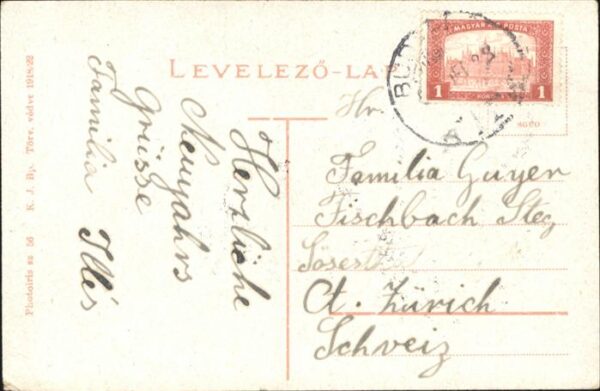 MAGYAR KIR. POSTA
1 KORONA 1
BUDAPEST
LEVELEZŐ-LA
Hr.
Familia Gujer
Fischbach Steg
Ct. Zürich
Schweiz
Herzliche
Neujahrs
Grüsse
Familia Illés
Photoiris sz 56 K. J. Bp. Törv. védve 1918/22